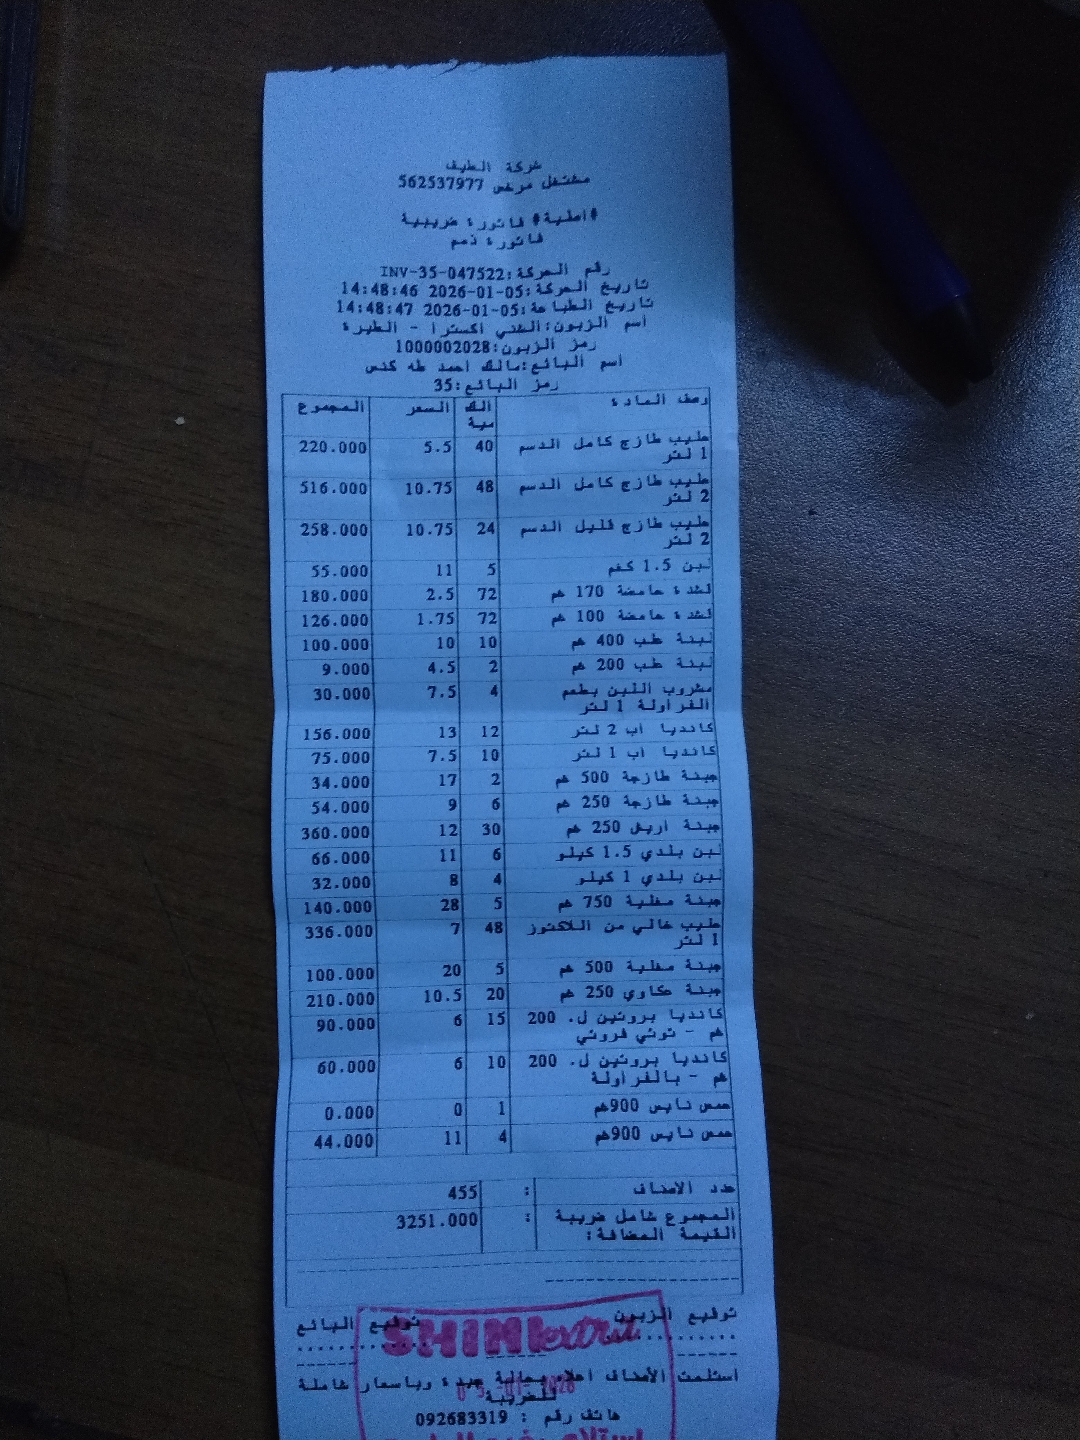 شركة الطيف
مشتغل مرخص 562537977
#أصلية# فاتورة ضريبية
فاتورة ذمم
رقم الحركة:INV-35-047522
تاريخ الحركة:2026-01-05 14:48:46
تاريخ الطباعة:2026-01-05 14:48:47
اسم الزبون:الشني اكسترا - الطيرة
رمز الزبون:1000002028
اسم البائع:مالك احمد طه كنس
رمز البائع:35
وصف المادة الكمية السعر المجموع
حليب طازج كامل الدسم 1 لتر 40 5.5 220.000
حليب طازج كامل الدسم 2 لتر 48 10.75 516.000
حليب طازج قليل الدسم 2 لتر 24 10.75 258.000
لبن 1.5 كغم 5 11 55.000
قشدة حامضة 170 غم 72 2.5 180.000
قشدة حامضة 100 غم 72 1.75 126.000
لبنة طب 400 غم 10 10 100.000
لبنة طب 200 غم 2 4.5 9.000
مشروب اللبن بطعم الفراولة 1 لتر 4 7.5 30.000
كانديا أب 2 لتر 12 13 156.000
كانديا أب 1 لتر 10 7.5 75.000
جبنة طازجة 500 غم 2 17 34.000
جبنة طازجة 250 غم 6 9 54.000
جبنة أريش 250 غم 30 12 360.000
لبن بلدي 1.5 كيلو 6 11 66.000
لبن بلدي 1 كيلو 4 8 32.000
جبنة مغلية 750 غم 5 28 140.000
حليب خالي من اللاكتوز 1 لتر 48 7 336.000
جبنة مغلية 500 غم 5 20 100.000
جبنة عكاوي 250 غم 20 10.5 210.000
كانديا بروتين ل. 200 غم - توتي فروتي 15 6 90.000
كانديا بروتين ل. 200 غم - بالفراولة 10 6 60.000
حمص نايس 900غم 1 0 0.000
حمص نايس 900غم 4 11 44.000
عدد الاصناف : 455
المجموع شامل ضريبة القيمة المضافة: : 3251.000
توقيع الزبون توقيع البائع
SHINI extra
استلمت الأصناف أعلاه بحالة جيدة وبأسعار شاملة
للضريبة
05 -01- 2026
هاتف رقم : 092683319